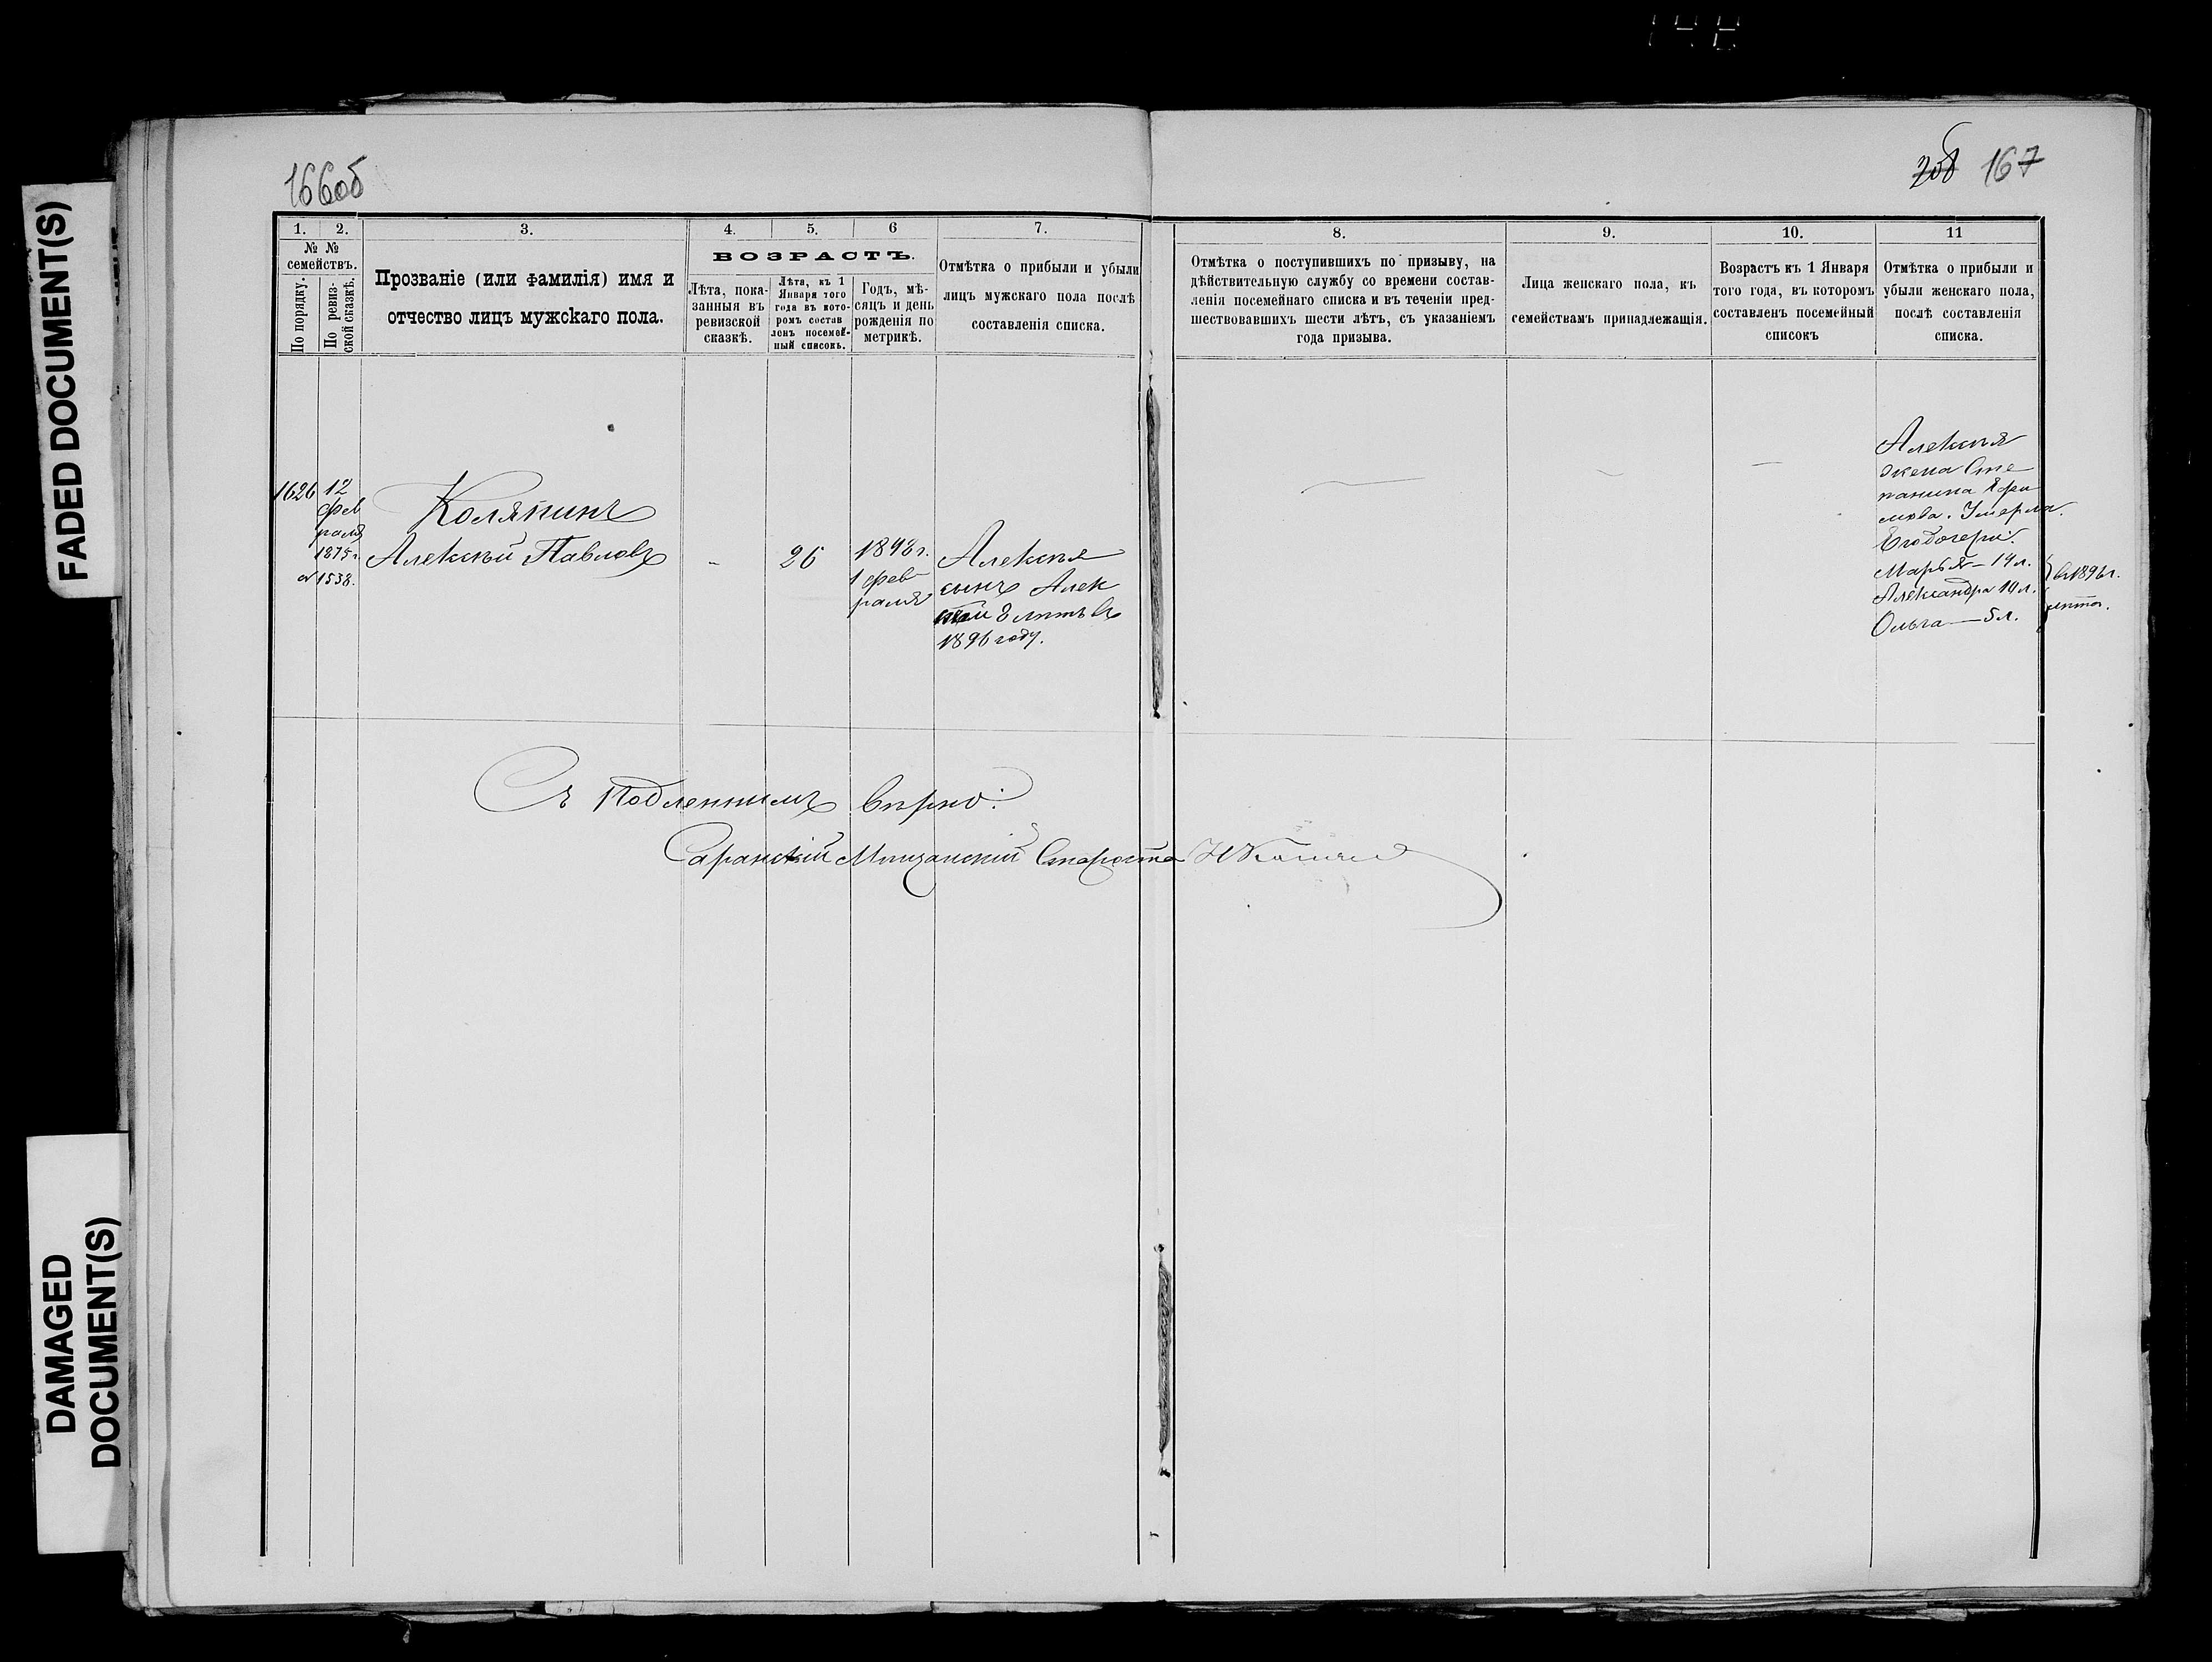 FADED DOCUMENT(S)
DAMAGED
DOCUMENT(S)
166об
167
1. 2. 3. 4. 5. 6 7.
№ №
семействъ.
По порядку.
По ревиз-
ской сказкѣ.
Прозваніе (или фамилія) имя и
отчество лицъ мужскаго пола.
ВОЗРАСТЪ.
Лѣта, пока-
занныя въ
ревизской
сказкѣ.
Лѣта, къ 1
Января того
года въ кото-
ромъ состав
ленъ посемей-
ный списокъ.
Годъ, мѣ-
сяцъ и день
рожденія по
метрикѣ.
Отмѣтка о прибыли и убыли
лицъ мужскаго пола послѣ
составленія списка.
8. 9. 10. 11
Отмѣтка о поступившихъ по призыву, на
дѣйствительную службу со времени состав-
ленія посемейнаго списка и въ теченіи пред-
шествовавшихъ шести лѣтъ, съ указаніемъ
года призыва.
Лица женскаго пола, къ
семействамъ принадлежащія.
Возрастъ къ 1 Января
того года, въ которомъ
составленъ посемейный
списокъ
Отмѣтка о прибыли и
убыли женскаго пола,
послѣ составленія
списка.
1626
12
фев
раля
1875 г.
№ 1538.
Коляпинъ
Алексѣй Павловъ
-
26
1848 г.
1 фев-
раля
Алексѣя
сынъ Алек
сѣй 8 лѣтъ въ
1896 году.
Алексѣя
жена Сте
панида Ефи
мова. Умерла.
Его дочери:
Марья - 14 л.
Александра 10 л.
Ольга — 5 л.
въ 1896 г.
лѣта.
Съ Подленнымъ вѣрно:
Саранскій Мѣщанскій Староста